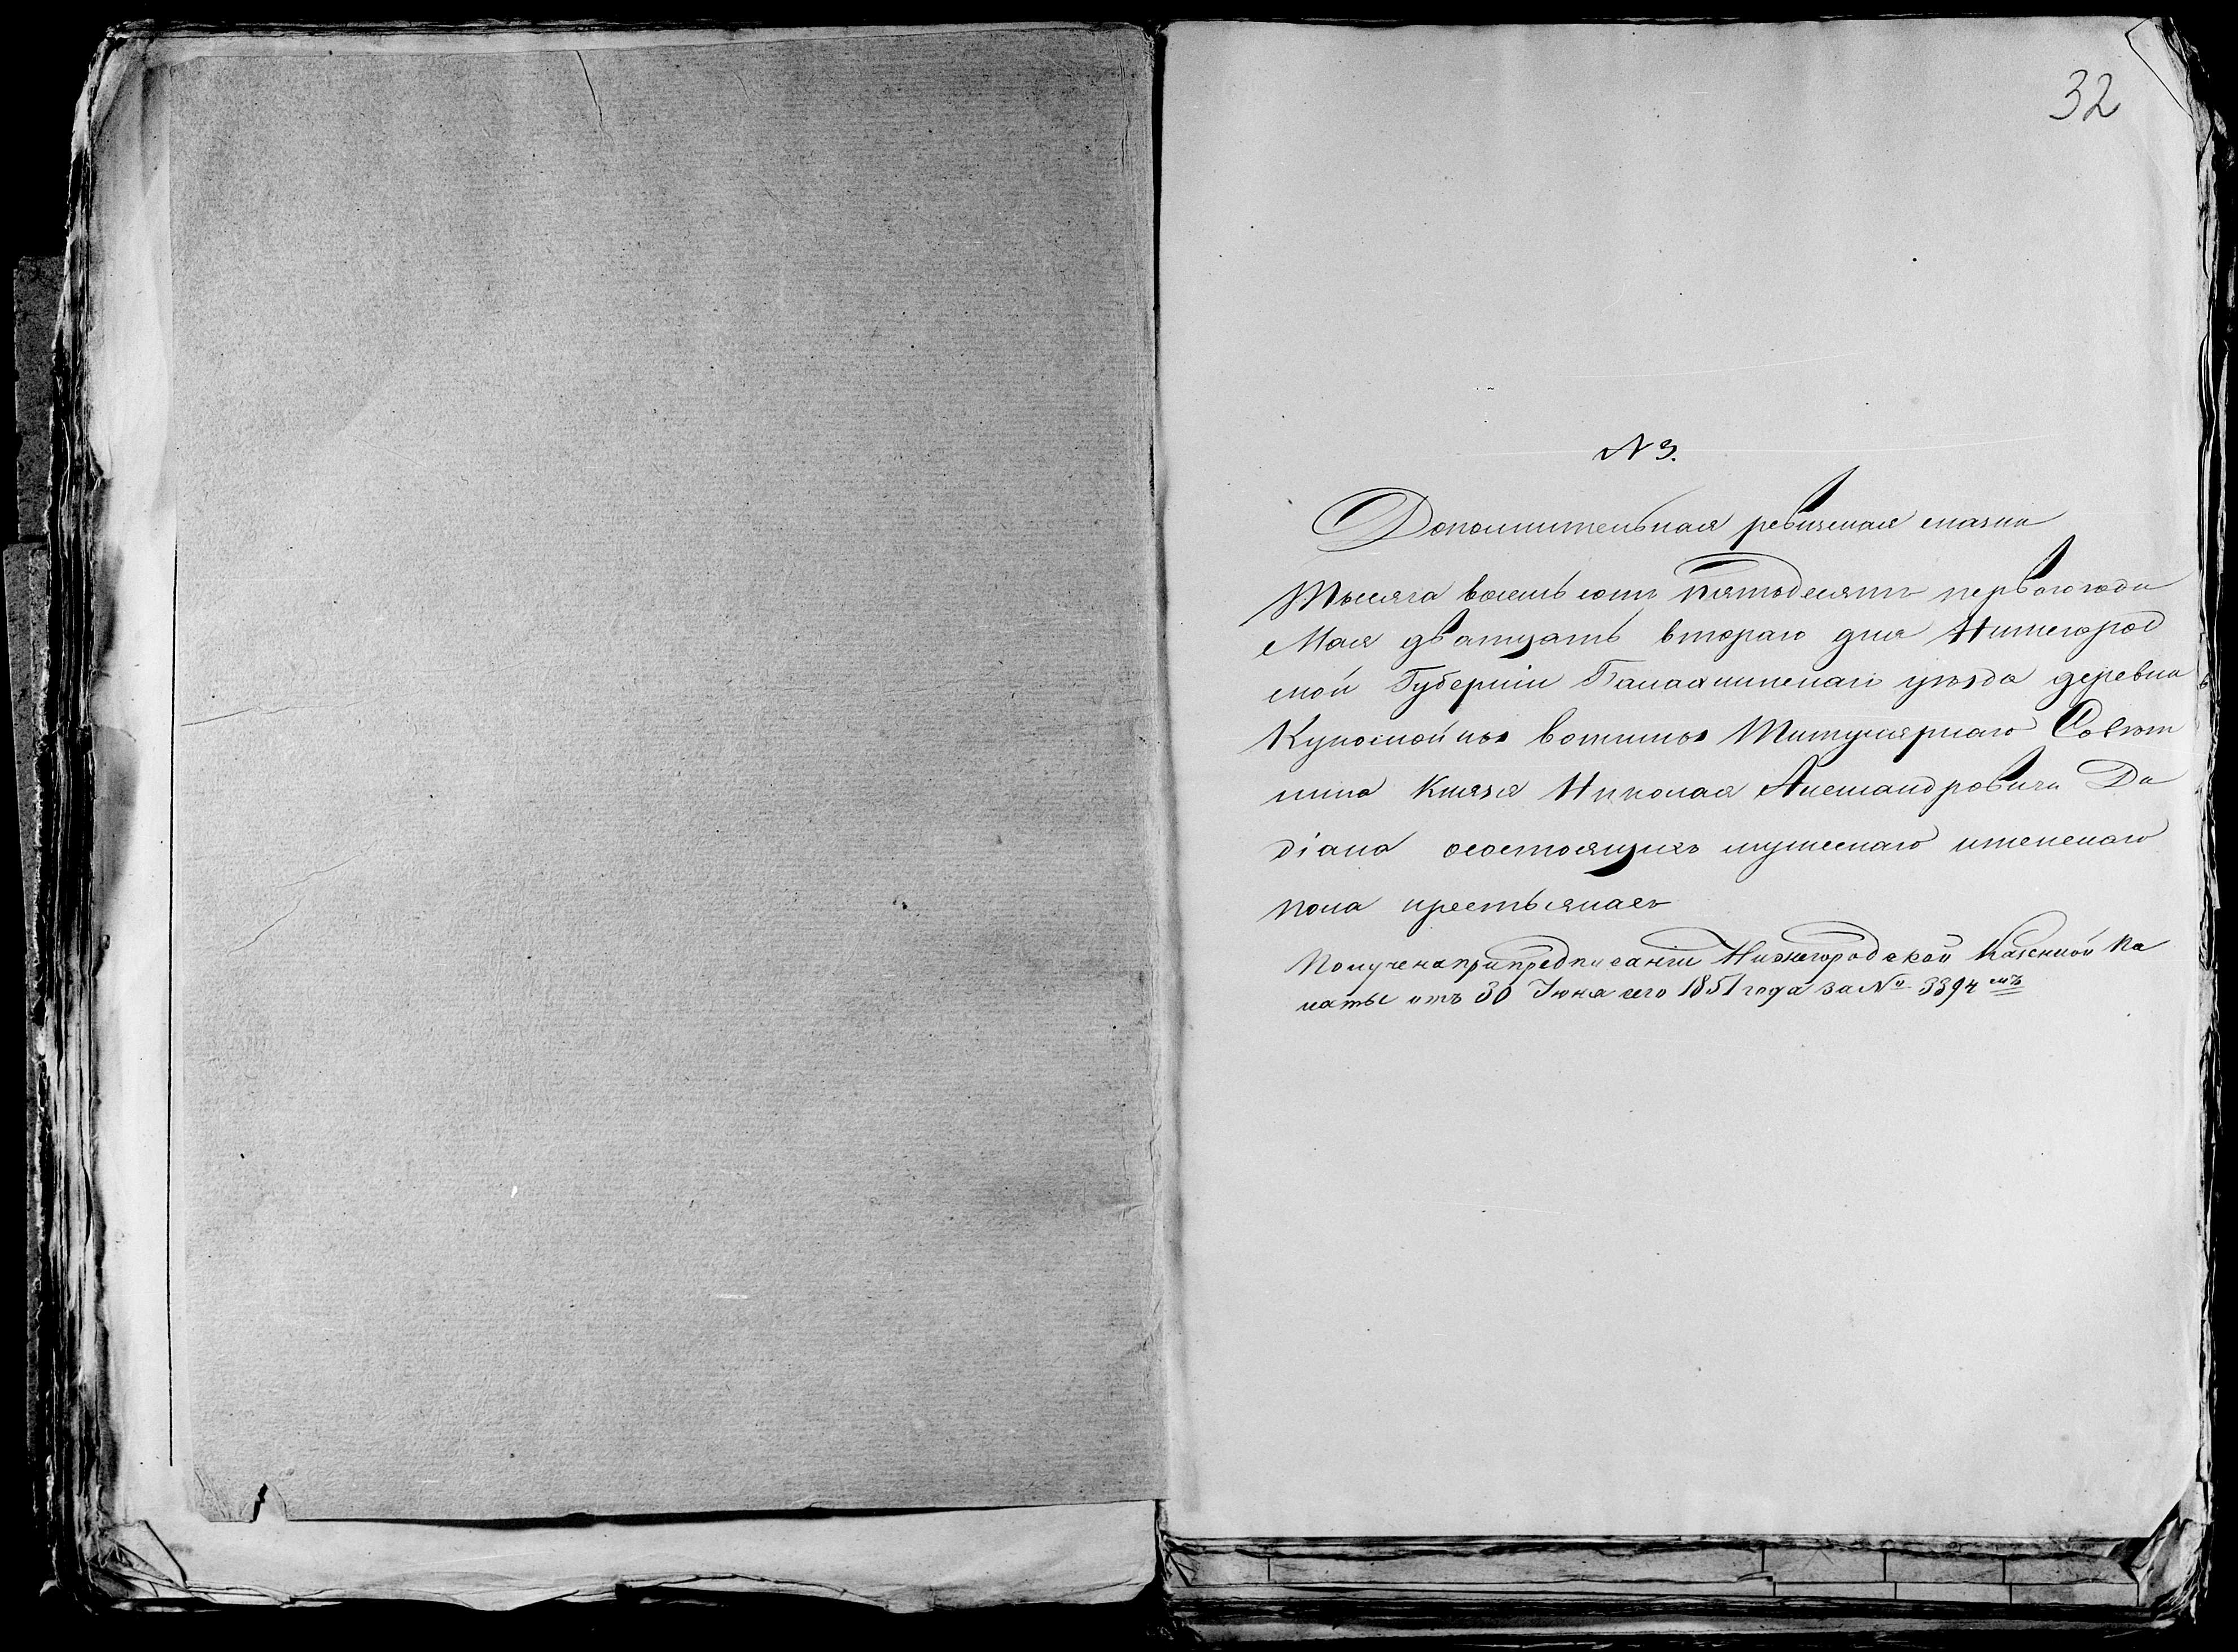 32
N 3.
Дополнительная ревизская сказка
Тысяча восемь сотъ пятьдесятъ перваго года
Мая дватцать втораго дня Нижегород
ской Губерніи Балахнинскаго уѣзда деревни
вотчины Титулярнаго Совѣт
ника Князя Николая Александровича Да
діана осостоящихъ мужескаго иженскаго
пола крестьянахъ
Получена припредписаніи Нижегородской Казенной Па
латы отъ 30 Июня сего 1851 года за № 3394 мъ